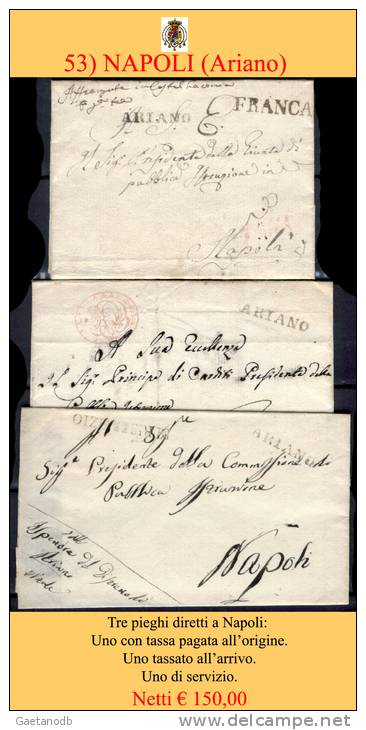 53) NAPOLI (Ariano)
ARIANO
FRANCA
Al Sig. Presidente della Giunta di
pubblica Istruzione in
Napoli
ARIANO
A Sua Eccellenza
Il Sig. Principe di Cardito Presidente della
ARIANO
Sig. Presidente della Commissione di
Pubblica Istruzione
Napoli
Tre pieghi diretti a Napoli:
Uno con tassa pagata all’origine.
Uno tassato all’arrivo.
Uno di servizio.
Netti € 150,00
Gaetanodb
delcampe.net